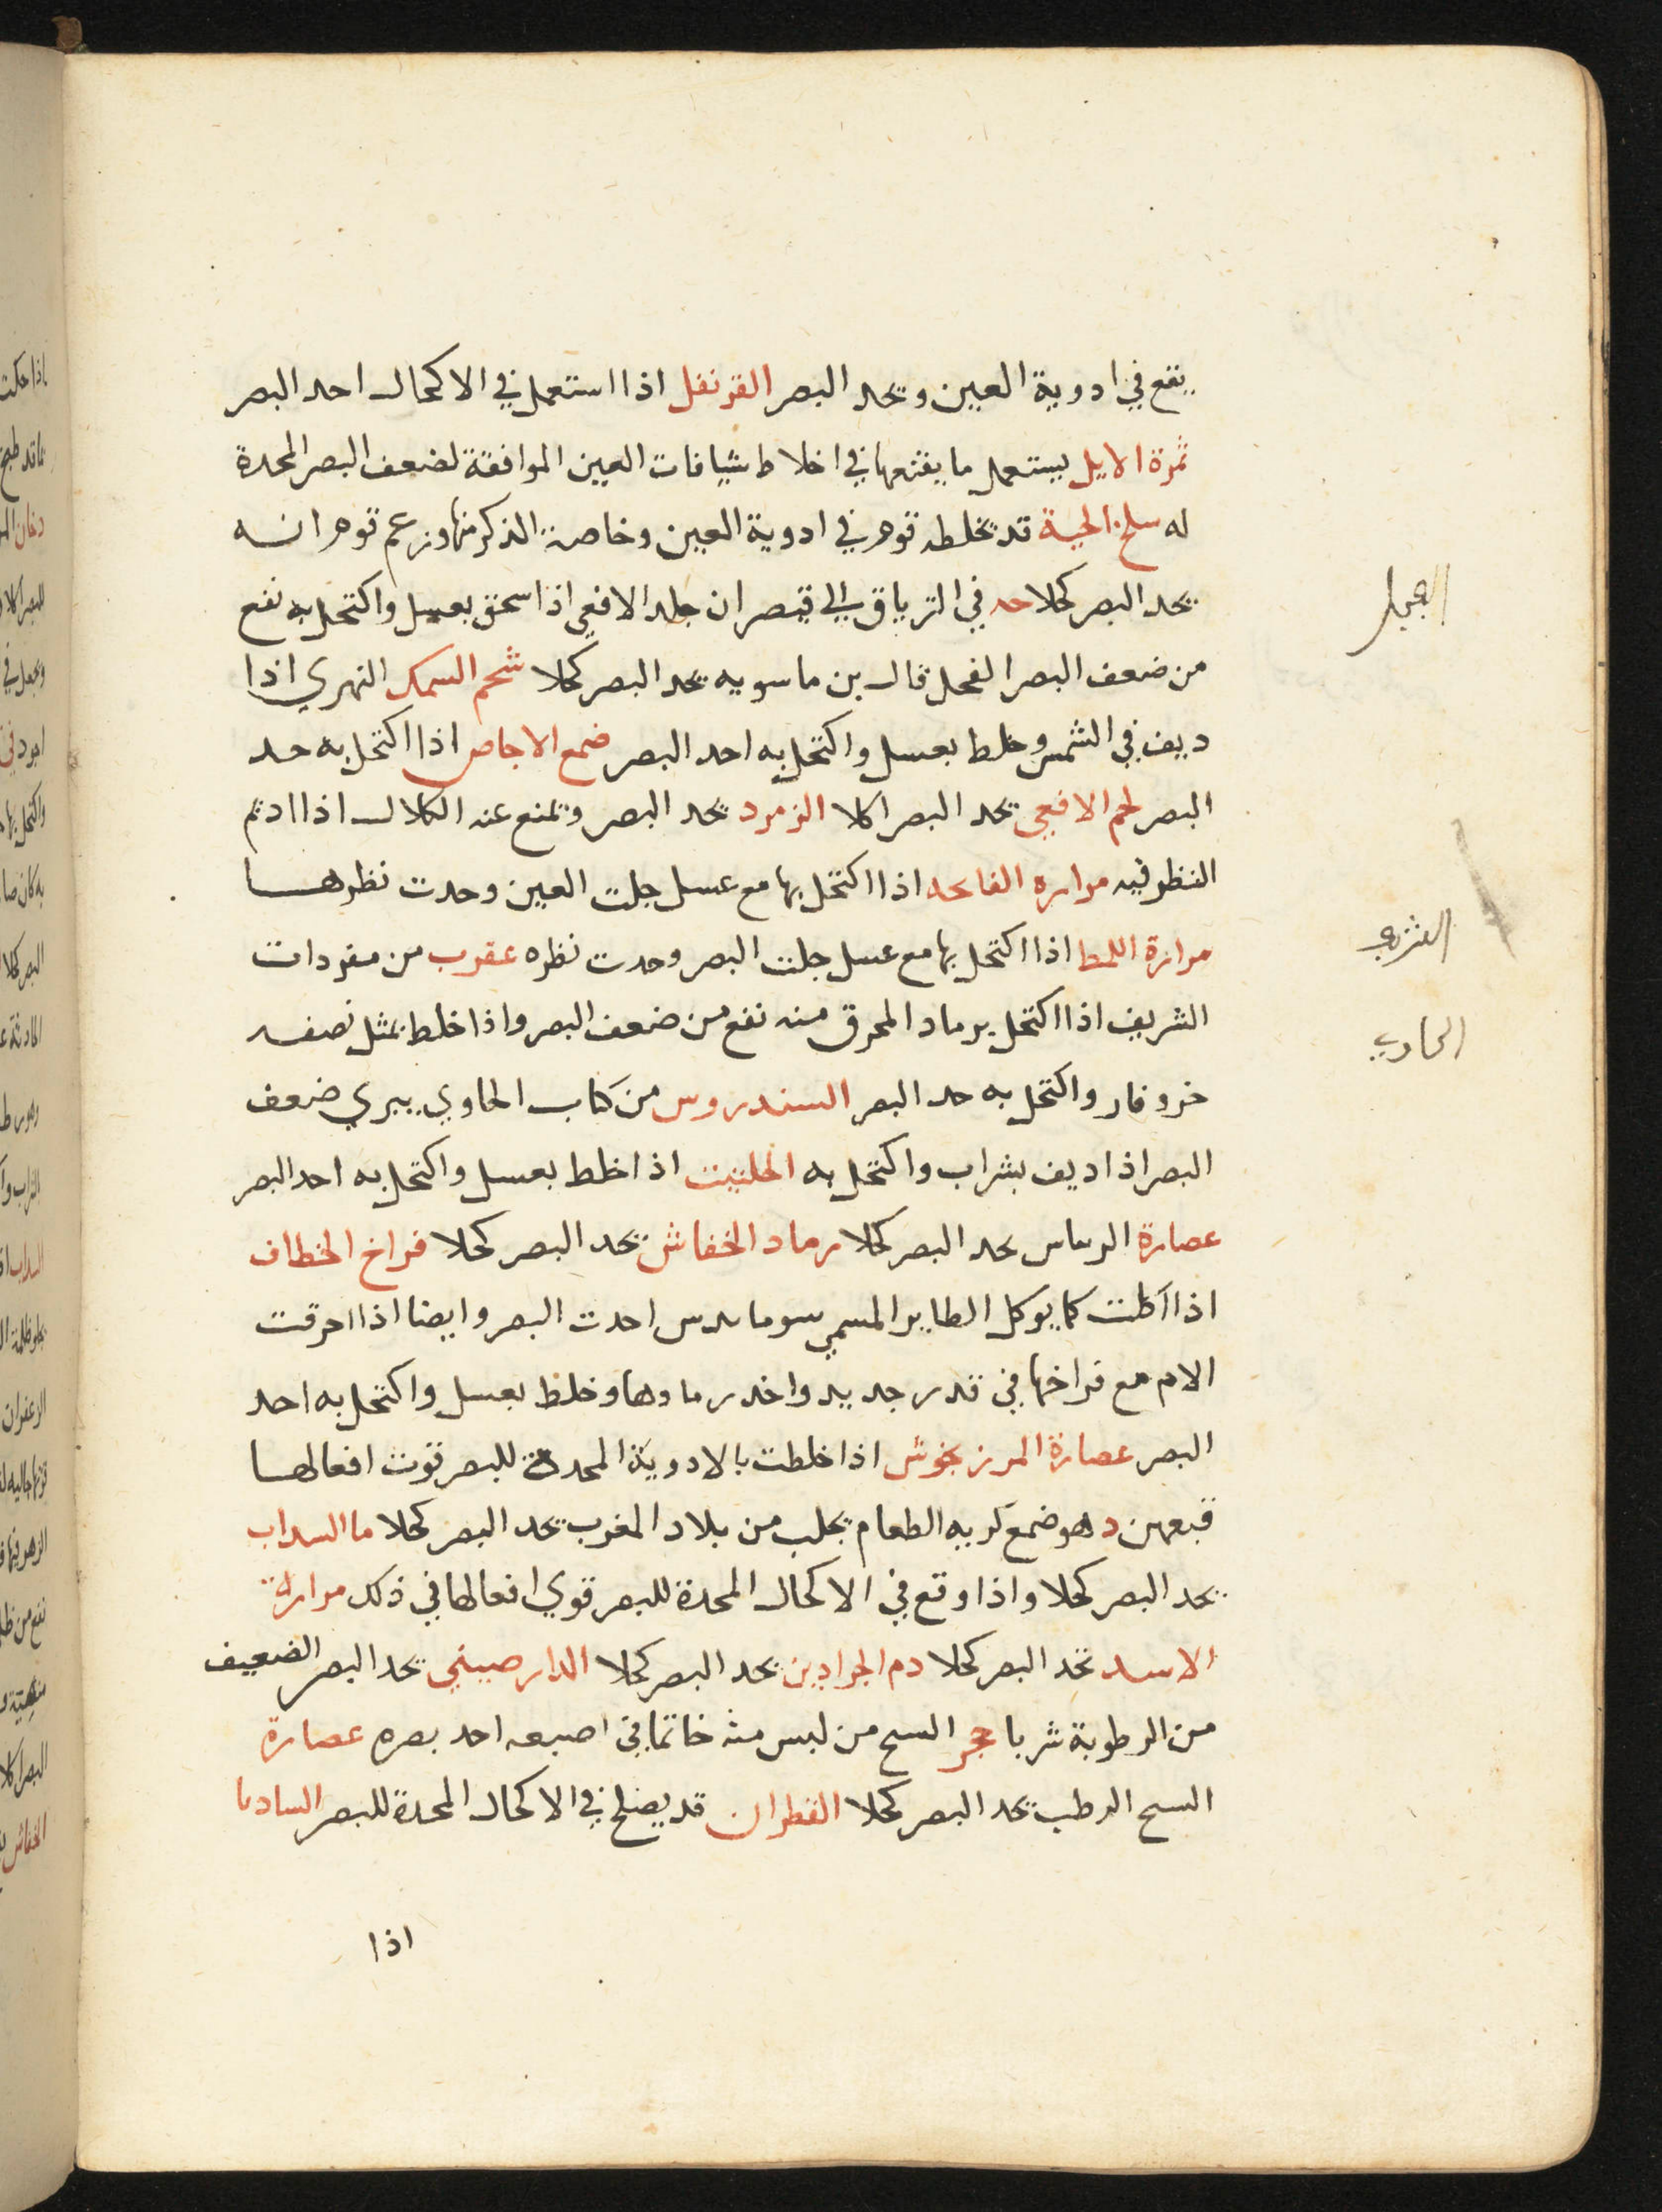 يقع في ادوية العين ويحد البصر القرنفل اذا استعمل في الاكحال احد البصر
ثمرة الايل يستعمل ما يقع في اخلاط شيافات العين الموافقة لضعف البصر المحدة
له سلخ الحية قد يخلطه قوم في ادوية العين وخاصة الذكر منها وزعم قوم انه
يحد البصر كحلا في الترياق الي قيصر ان جلد الافعي اذا سحق بعسل واكتحل به نفع
من ضعف البصر الفجل قال بن ماسويه يحد البصر كحلا شحم السمك النهري اذا
ديف في الشمس وخلط بعسل واكتحل به احد البصر ضمع الاجاص اذا اكتحل به حد
البصر لحم الافعي يحد البصر اكلا الزمرد يحد البصر ويمنع عنه الكلال اذا ادتم
النظر فيه مراره اذا اكتحل بها مع عسل جلت العين وحدت نظرها
مرارة اذا اكتحل بها مع عسل جلت البصر وحدت نظره عقرب من مفردات
الشريف اذا اكتحل برماد المحرق منه نفع من ضعف البصر واذا خلط بمثل نصفه
خرو فار واكتحل به حد البصر السندروس من كتاب الحاوي يبري ضعف
البصر اذا ديف بشراب واكتحل به الحلتيت اذا خلط بعسل واكتحل به احد البصر
عصارة يحد البصر كحلا رماد الخفاش يحد البصر كحلا فراخ الخطاف
اذا اكلت كما يوكل الطاير المسمي احدت البصر وايضا اذا احرقت
الام مع فراخها في قدر جديد واخد رمادها وخلط بعسل واكتحل به احد
البصر عصارة المرزنجوش اذا خلطت بالادوية المحدة للبصر قوت افعالها
وهو ضمع كريه الطعام يجلب من بلاد المغرب يحد البصر كحلا ما السداب
يحد البصر كحلا واذا وقع في الاكحال المحدة للبصر قوي افعالها في ذلك مرارة
الاسد تحد البصر كحلا دم الجرادين يحد البصر كحلا الدارصيني يحد البصر الضعيف
من الرطوبة شربا حجر السبح من لبس منه خاتما في اصبعه احد بصره عصارة
الرطب يحد البصر كحلا القطران قد يصلح في الاكحال المحدة للبصر
اذا
الشريف
الحاوي